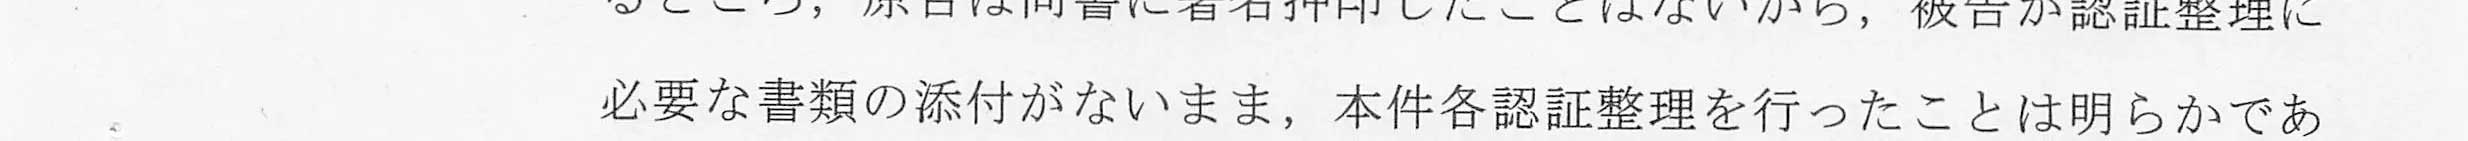 るところ，原告は同書に署名押印したことはないから，被告が認証整理に
必要な書類の添付がないまま，本件各認証整理を行ったことは明らかであ